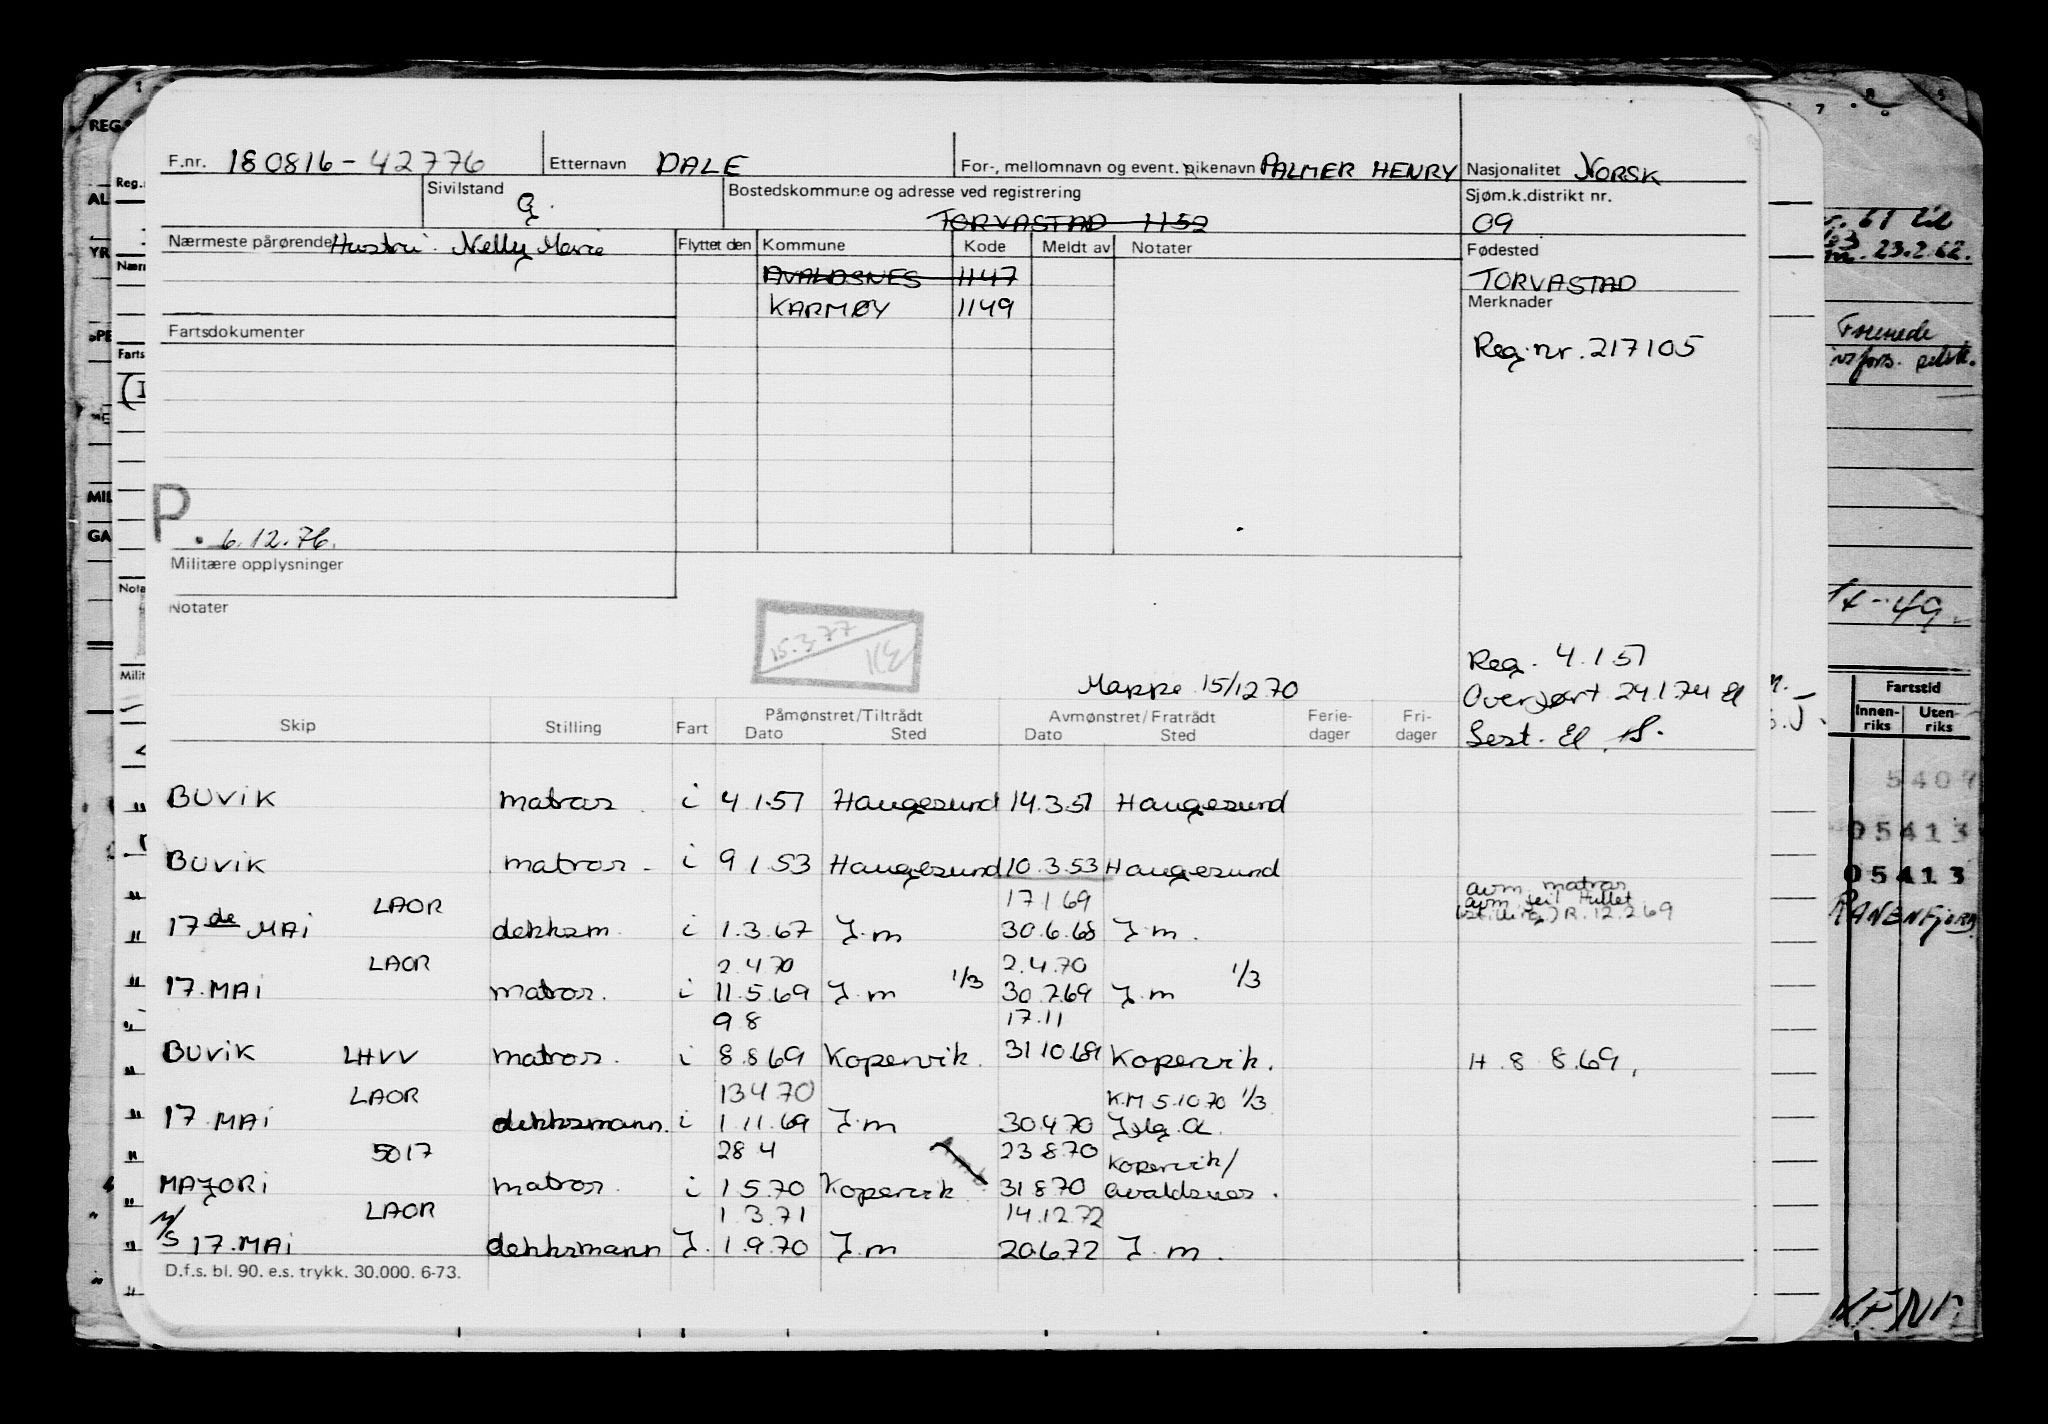 F.nr. 180816-42776 Etternavn DALE For-, mellomnavn og event. pikenavn PALMER HENRY Nasjonalitet NORSK
Sivilstand G. Bostedskommune og adresse ved registrering Sjøm.k.distrikt nr.
TORVASTAD 1152 09
Nærmeste pårørende Hustru Nelly Marie Flyttet den Kommune Kode Meldt av Notater Fødested
AVALDSNES 1147 TORVASTAD
KARMØY 1149 Merknader
Fartsdokumenter Reg.nr. 217105
P. 6.12.76.
Militære opplysninger
Notater
15.3.77
Reg. 4.1 51
Mappe 15/12 70 Overført 24.1.74 El
Skip Stilling Fart Påmønstret/Tiltrådt Avmønstret/Fratrådt Ferie- Fri-
Dato Sted Dato Sted dager dager
BUVIK matros i 4.1.51 Haugesund 14.3.51 Haugesund
BUVIK matros i 9 1.53 Haugesund 10.3.53 Haugesund
LAOR 17 1 69 avm. matros
17de MAI dekksm. i 1.3.67 J.m 30.6.68 J.m. R. 12.2.69
LAOR 2.4.70 2.4.70
17.MAI matros. i 11.5.69 J.m 1/3 30.7.69 J.m 1/3
9 8 17.11
BUVIK LHVV matros. i 8.8.69 Kopervik. 31.10.69 Kopervik. H.8 8.69.
LAOR 13 4 70 K.M 5.10.70 1/3
17 MAI dekksmann. i 1 11.69 J.m 30.4.70
5017 28 4 23 8.70 Kopervik/
MAJORI matros. i 1 5.70 Kopervik 31 8 70 Avaldsnes.
LAOR 1 3.71 14.12.72
M/S 17.MAI dekksmann J. 1.9.70 J.m 20.6.72 J.m.
D.f.s. bl. 90. e.s. trykk. 30.000. 6-73.
REG.
AL
YR
MIL
GA
Reg.
Farts
Nota
Milit
23.2.62.
Fartstid
Innen-riks Uten-riks
05413
05413
RANENFJORD